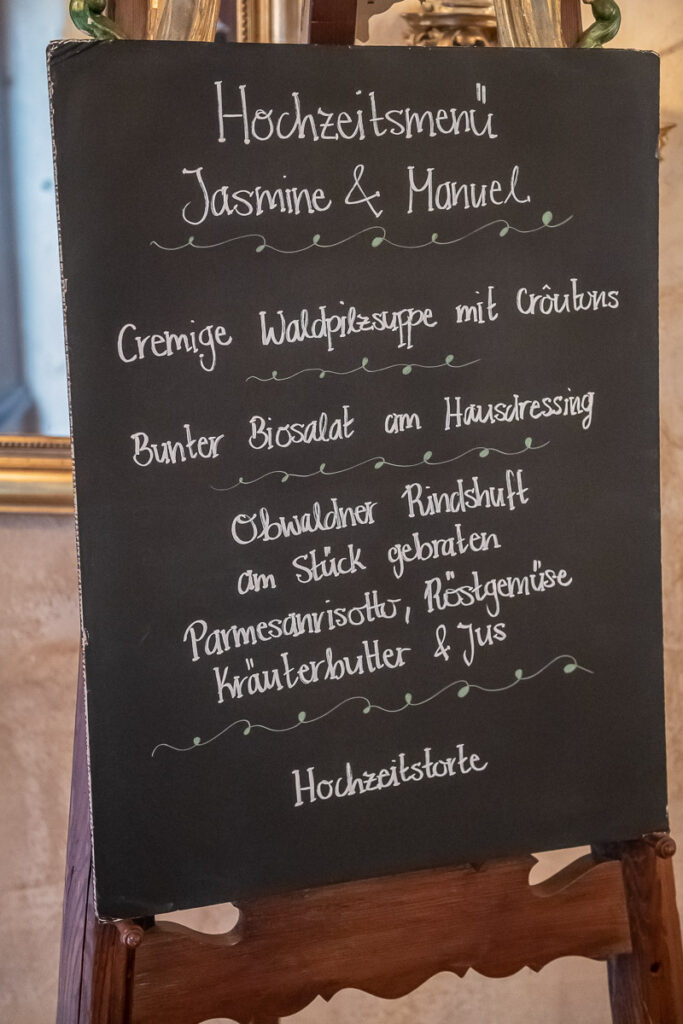 Hochzeitsmenü
Jasmine & Manuel
Cremige Waldpilzsuppe mit Crôutons
Bunter Biosalat am Hausdressing
Obwaldner Rindshuft
am Stück gebraten
Parmesanrisotto, Röstgemüse
Kräuterbutter & Jus
Hochzeitstorte